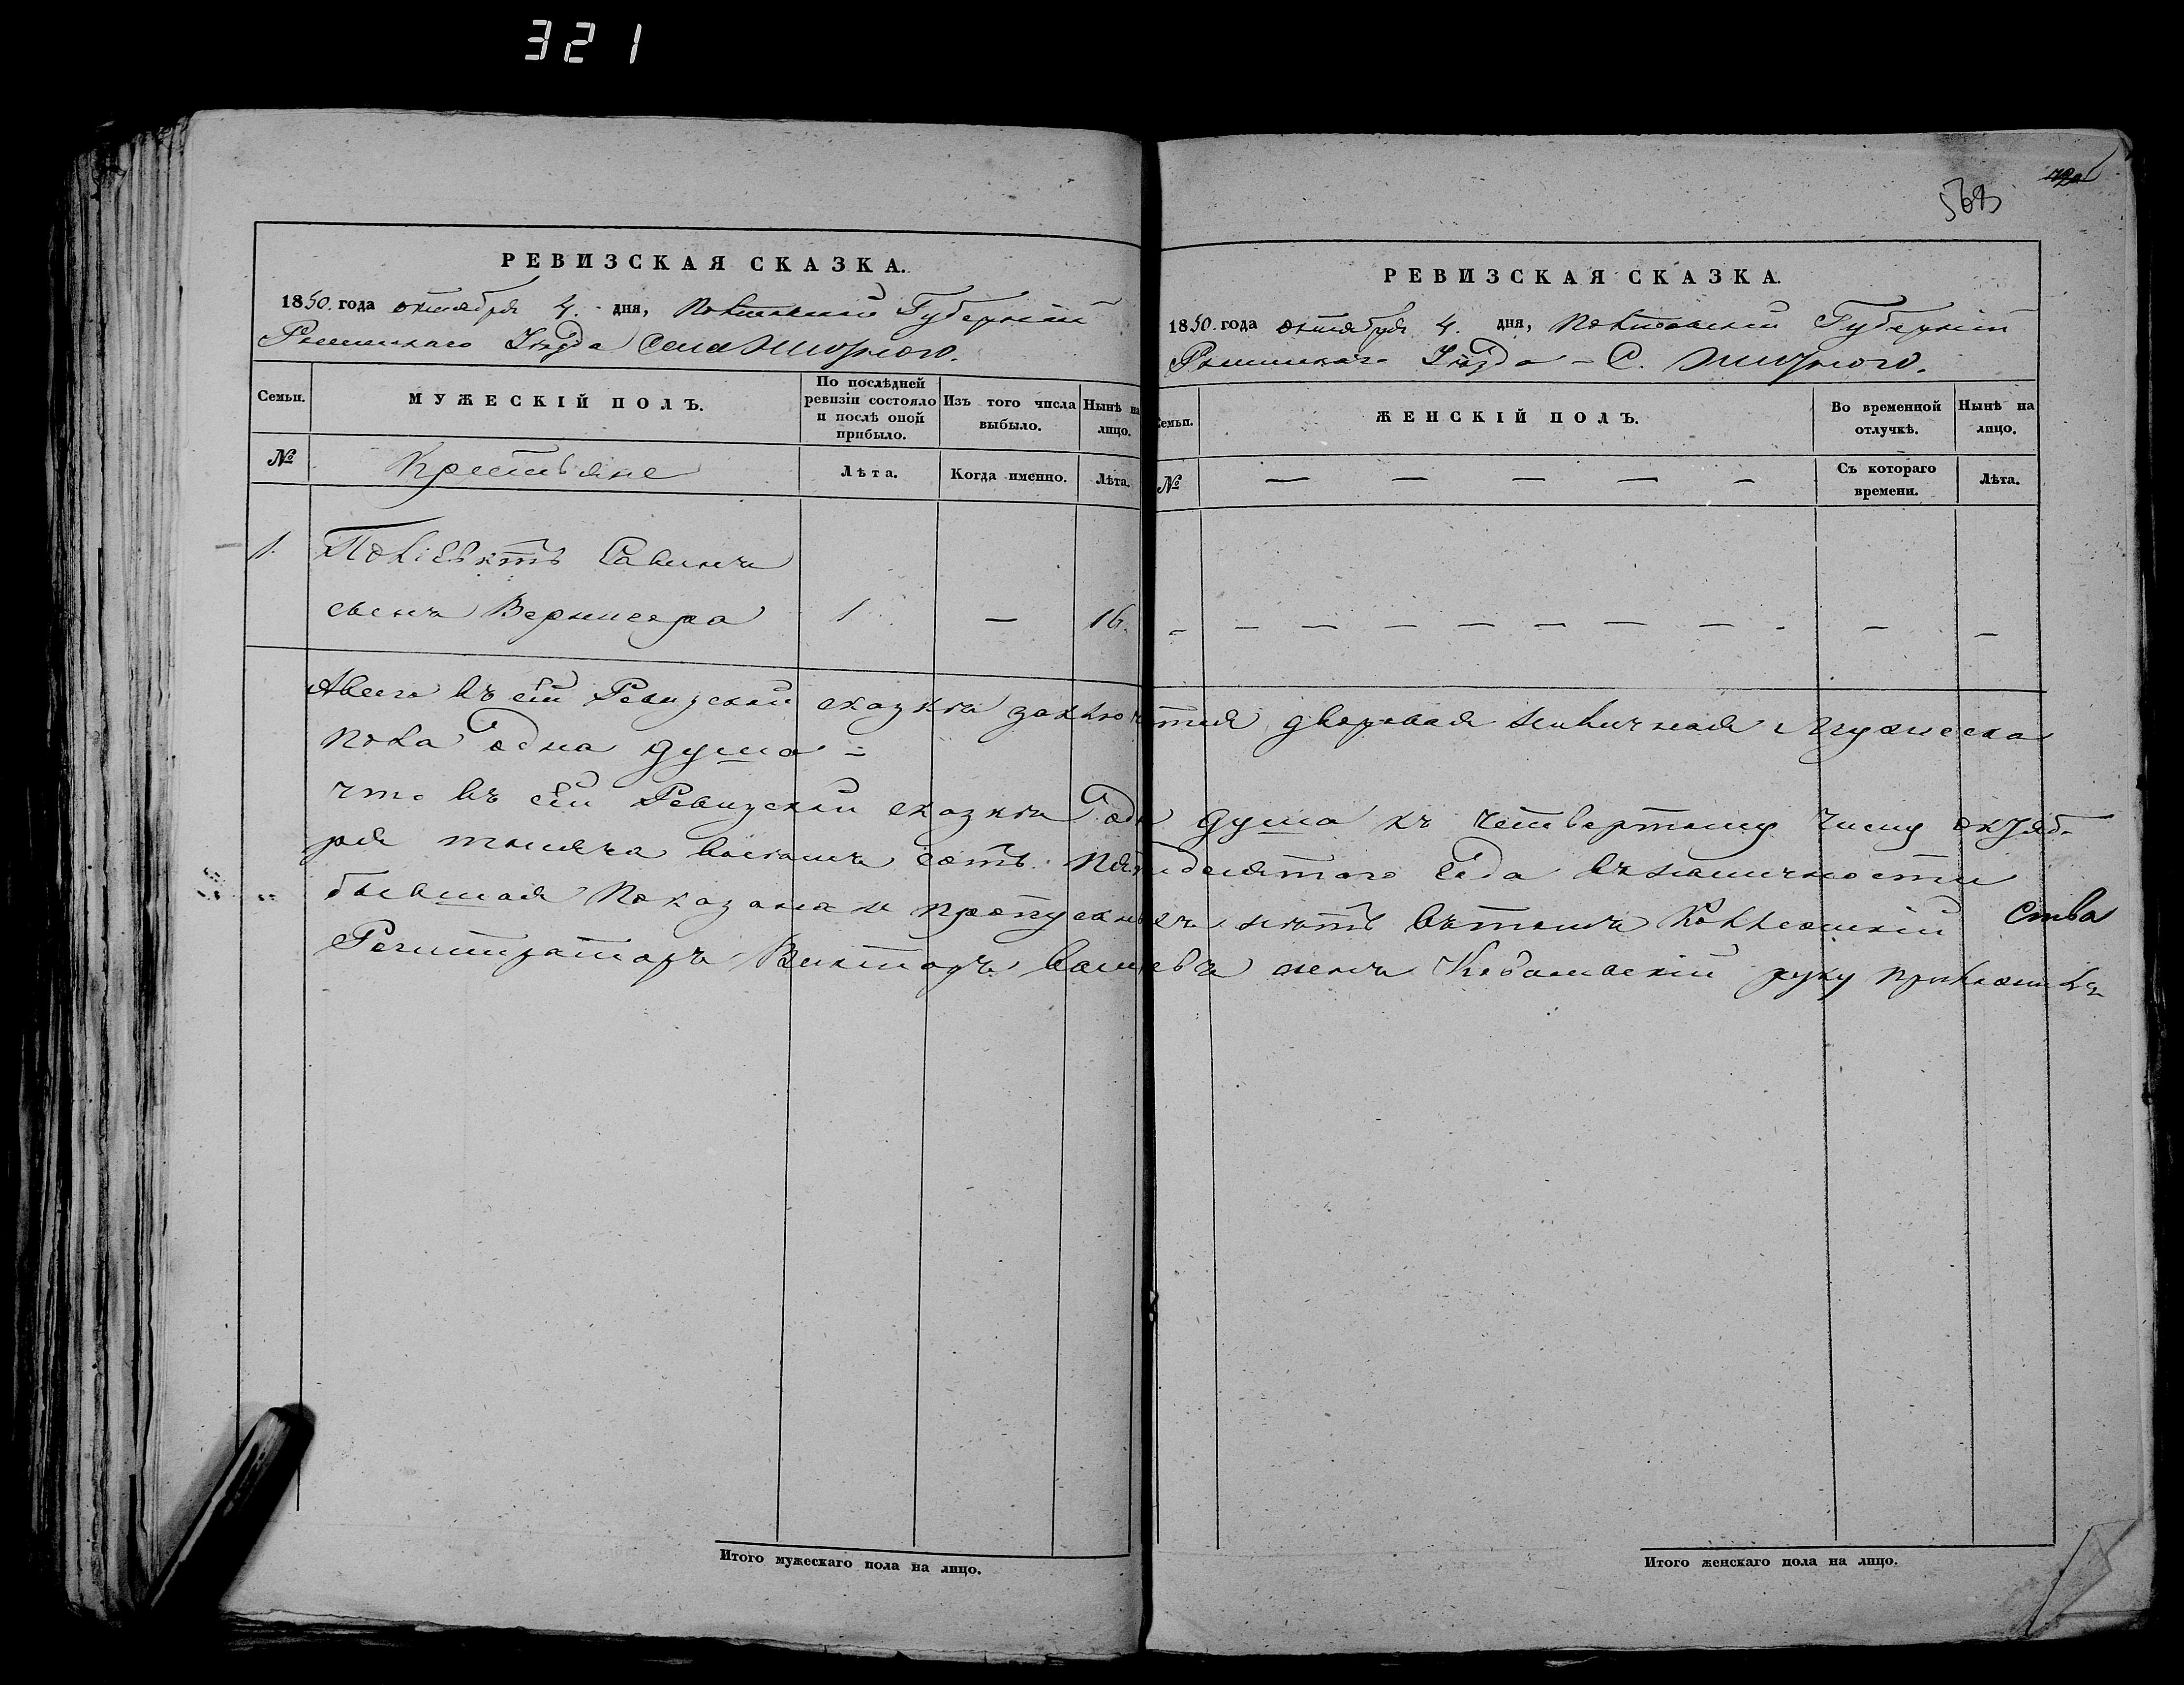 321
568
РЕВИЗСКАЯ СКАЗКА.
1850. года октября 4. дня, Полтавской Губерніи
Роменскаго Уѣзда Села
Семьи.
МУЖЕСКІЙ ПОЛЪ.
По послѣдней ревизіи состояло и послѣ оной прибыло.
Изъ того числа выбыло.
Нынѣ на лицо.
№
Крестьяне
Лѣта.
Когда именно.
Лѣта.
1.
Поліевктъ Савинъ
сынъ 1 — 16.
РЕВИЗСКАЯ СКАЗКА.
1850. года октября 4. дня, Полтавской Губерніи
Роменскаго Уѣзда – С.
Семьи.
ЖЕНСКІЙ ПОЛЪ.
Во временной отлучкѣ.
Нынѣ на лицо.
№
— — — — –
Съ котораго времени.
Лѣта.
– — — — — — — — — - — —
Авсего въ сей Ревизской сказкѣ заключается дворовая наличная Мужеска
пола одна душа =
что въ сей Ревизской сказкѣ одна душа къ четвертому числу октяб-
ря тысяча восемъ сотъ пятидесятого года въ наличности
бывшая показана и пропускныхъ нѣтъ въ томъ Коллежскій
Регистраторъ Викторъ руку приложилъ
Итого мужескаго пола на лицо.
Итого женскаго пола на лицо.